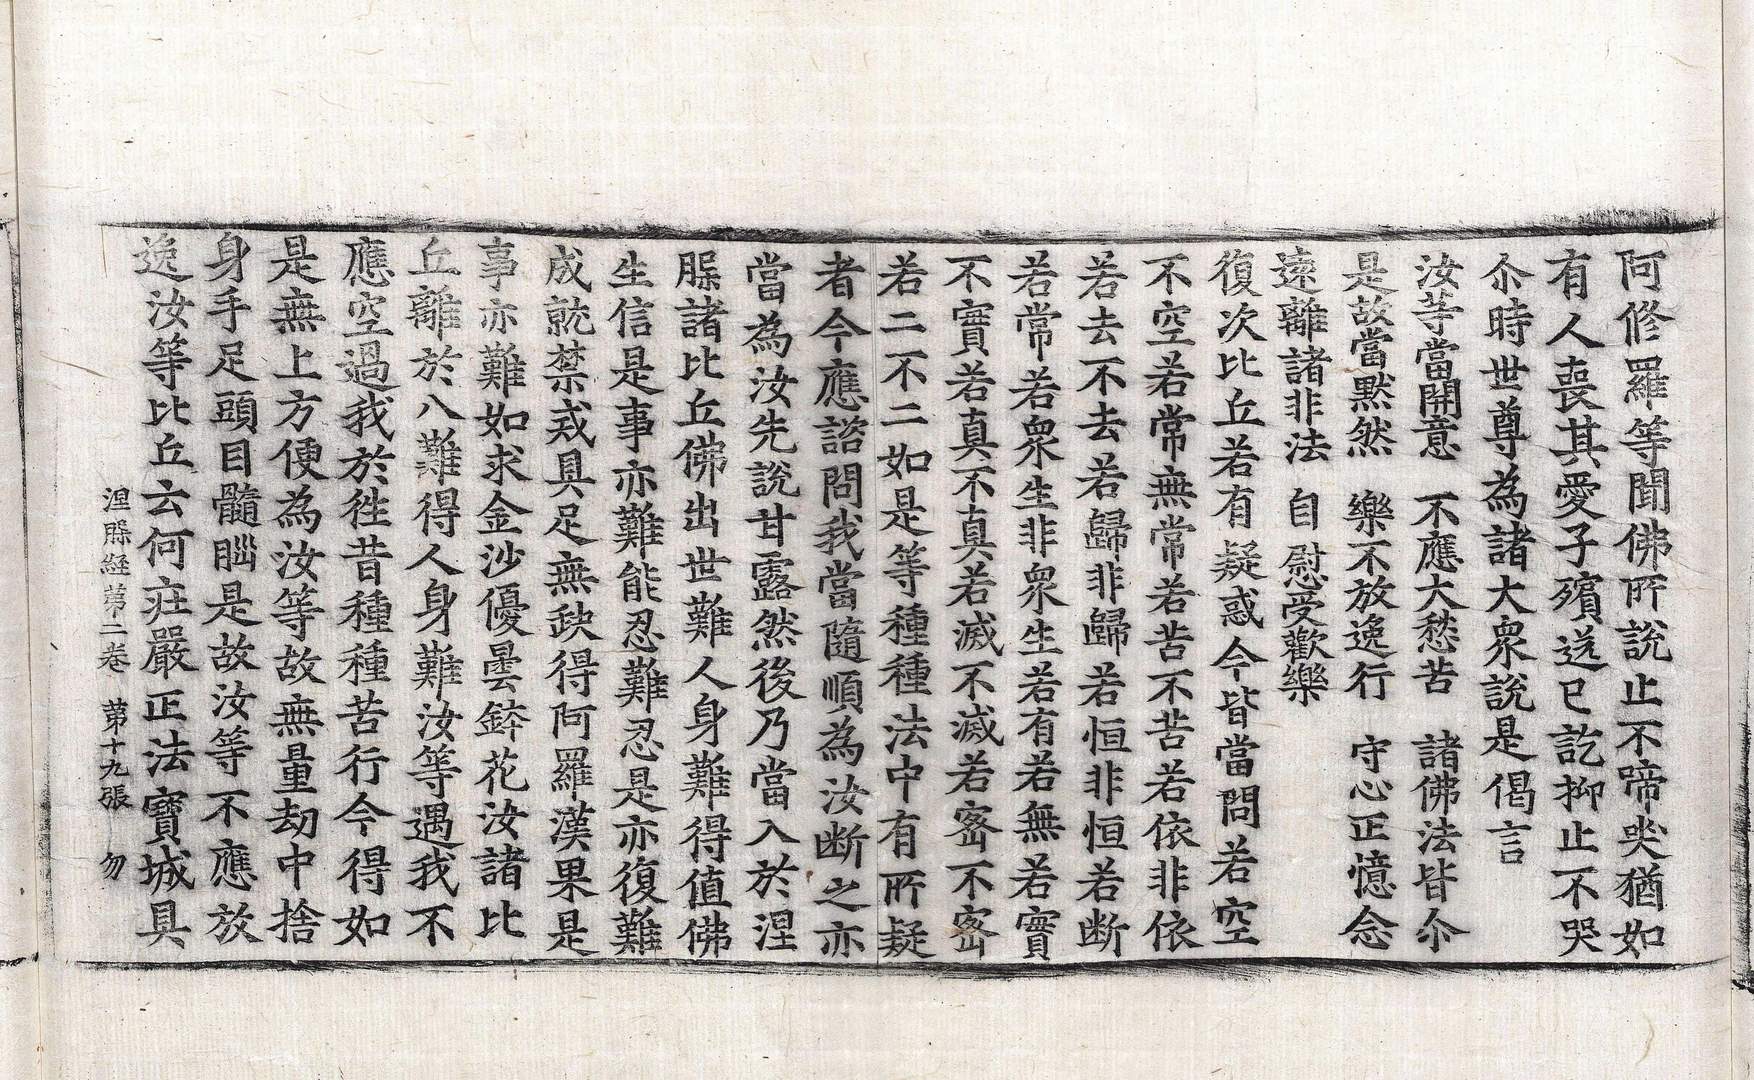 阿修羅等聞佛所說止不啼哭猶如
有人喪其愛子殯送已訖抑止不哭
尒時世尊為諸大衆說是偈言
汝等當開意　不應大愁苦　諸佛法皆尒
是故當默然　樂不放逸行　守心正憶念
遠離諸非法　自慰受歡樂
復次比丘若有疑惑今皆當問若空
不空若常無常若苦不苦若依非依
若去不去若歸非歸若恒非恒若断
若常若衆生非衆生若有若無若實
不實若真不真若滅不滅若密不密
若二不二如是等種種法中有所疑
者今應諮問我當隨順為汝断之亦
當為汝先說甘露然後乃當入於涅
槃諸比丘佛出世難人身難得值佛
生信是事亦難能忍難忍是亦復難
成就禁戒具足無缺得阿羅漢果是
事亦難如求金沙優曇鉢花汝諸比
丘離於八難得人身難汝等遇我不
應空過我於往昔種種苦行今得如
是無上方便為汝等故無量劫中捨
身手足頭目髓𦛁是故汝等不應放
逸汝等比丘云何莊嚴正法寶城具
涅槃經第二卷　第十九張　勿